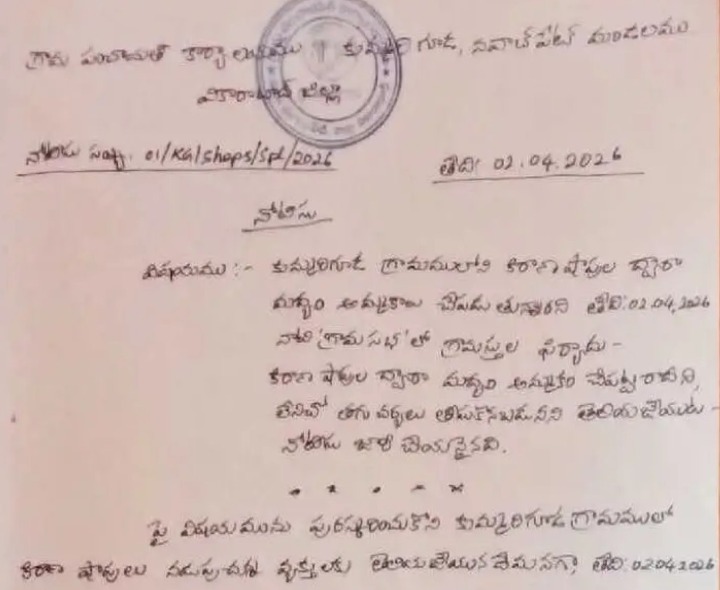 గ్రామ పంచాయతీ కార్యాలయము కుమ్మరిగూడ, నవాబ్ పేట్ మండలము
వికారాబాద్ జిల్లా
నోటీసు సంఖ్య. 01/KG/Shops/Spl/2026 తేది: 02.04.2026
నోటీసు
విషయము :- కుమ్మరిగూడ గ్రామములోని కిరాణ షాపుల ద్వారా
మద్యం అమ్మకాలు చేపడుతున్నారని తేది:02.04.2026
నాటి 'గ్రామసభ'లో గ్రామస్తుల ఫిర్యాదు -
కిరాణ షాపుల ద్వారా మద్యం అమ్మకం చేపట్టరాదని,
లేనిచో తగు చర్యలు తీసుకొనబడునని తెలియజేయుట -
నోటీసు జారీ చేయనైనది.
* * * *
పై విషయమును పురస్కరించుకొని కుమ్మరిగూడ గ్రామములో
కిరాణ షాపులు నడుపుచున్న వ్యక్తులకు తెలియజేయునదేమనగా, తేది:02.04.2026